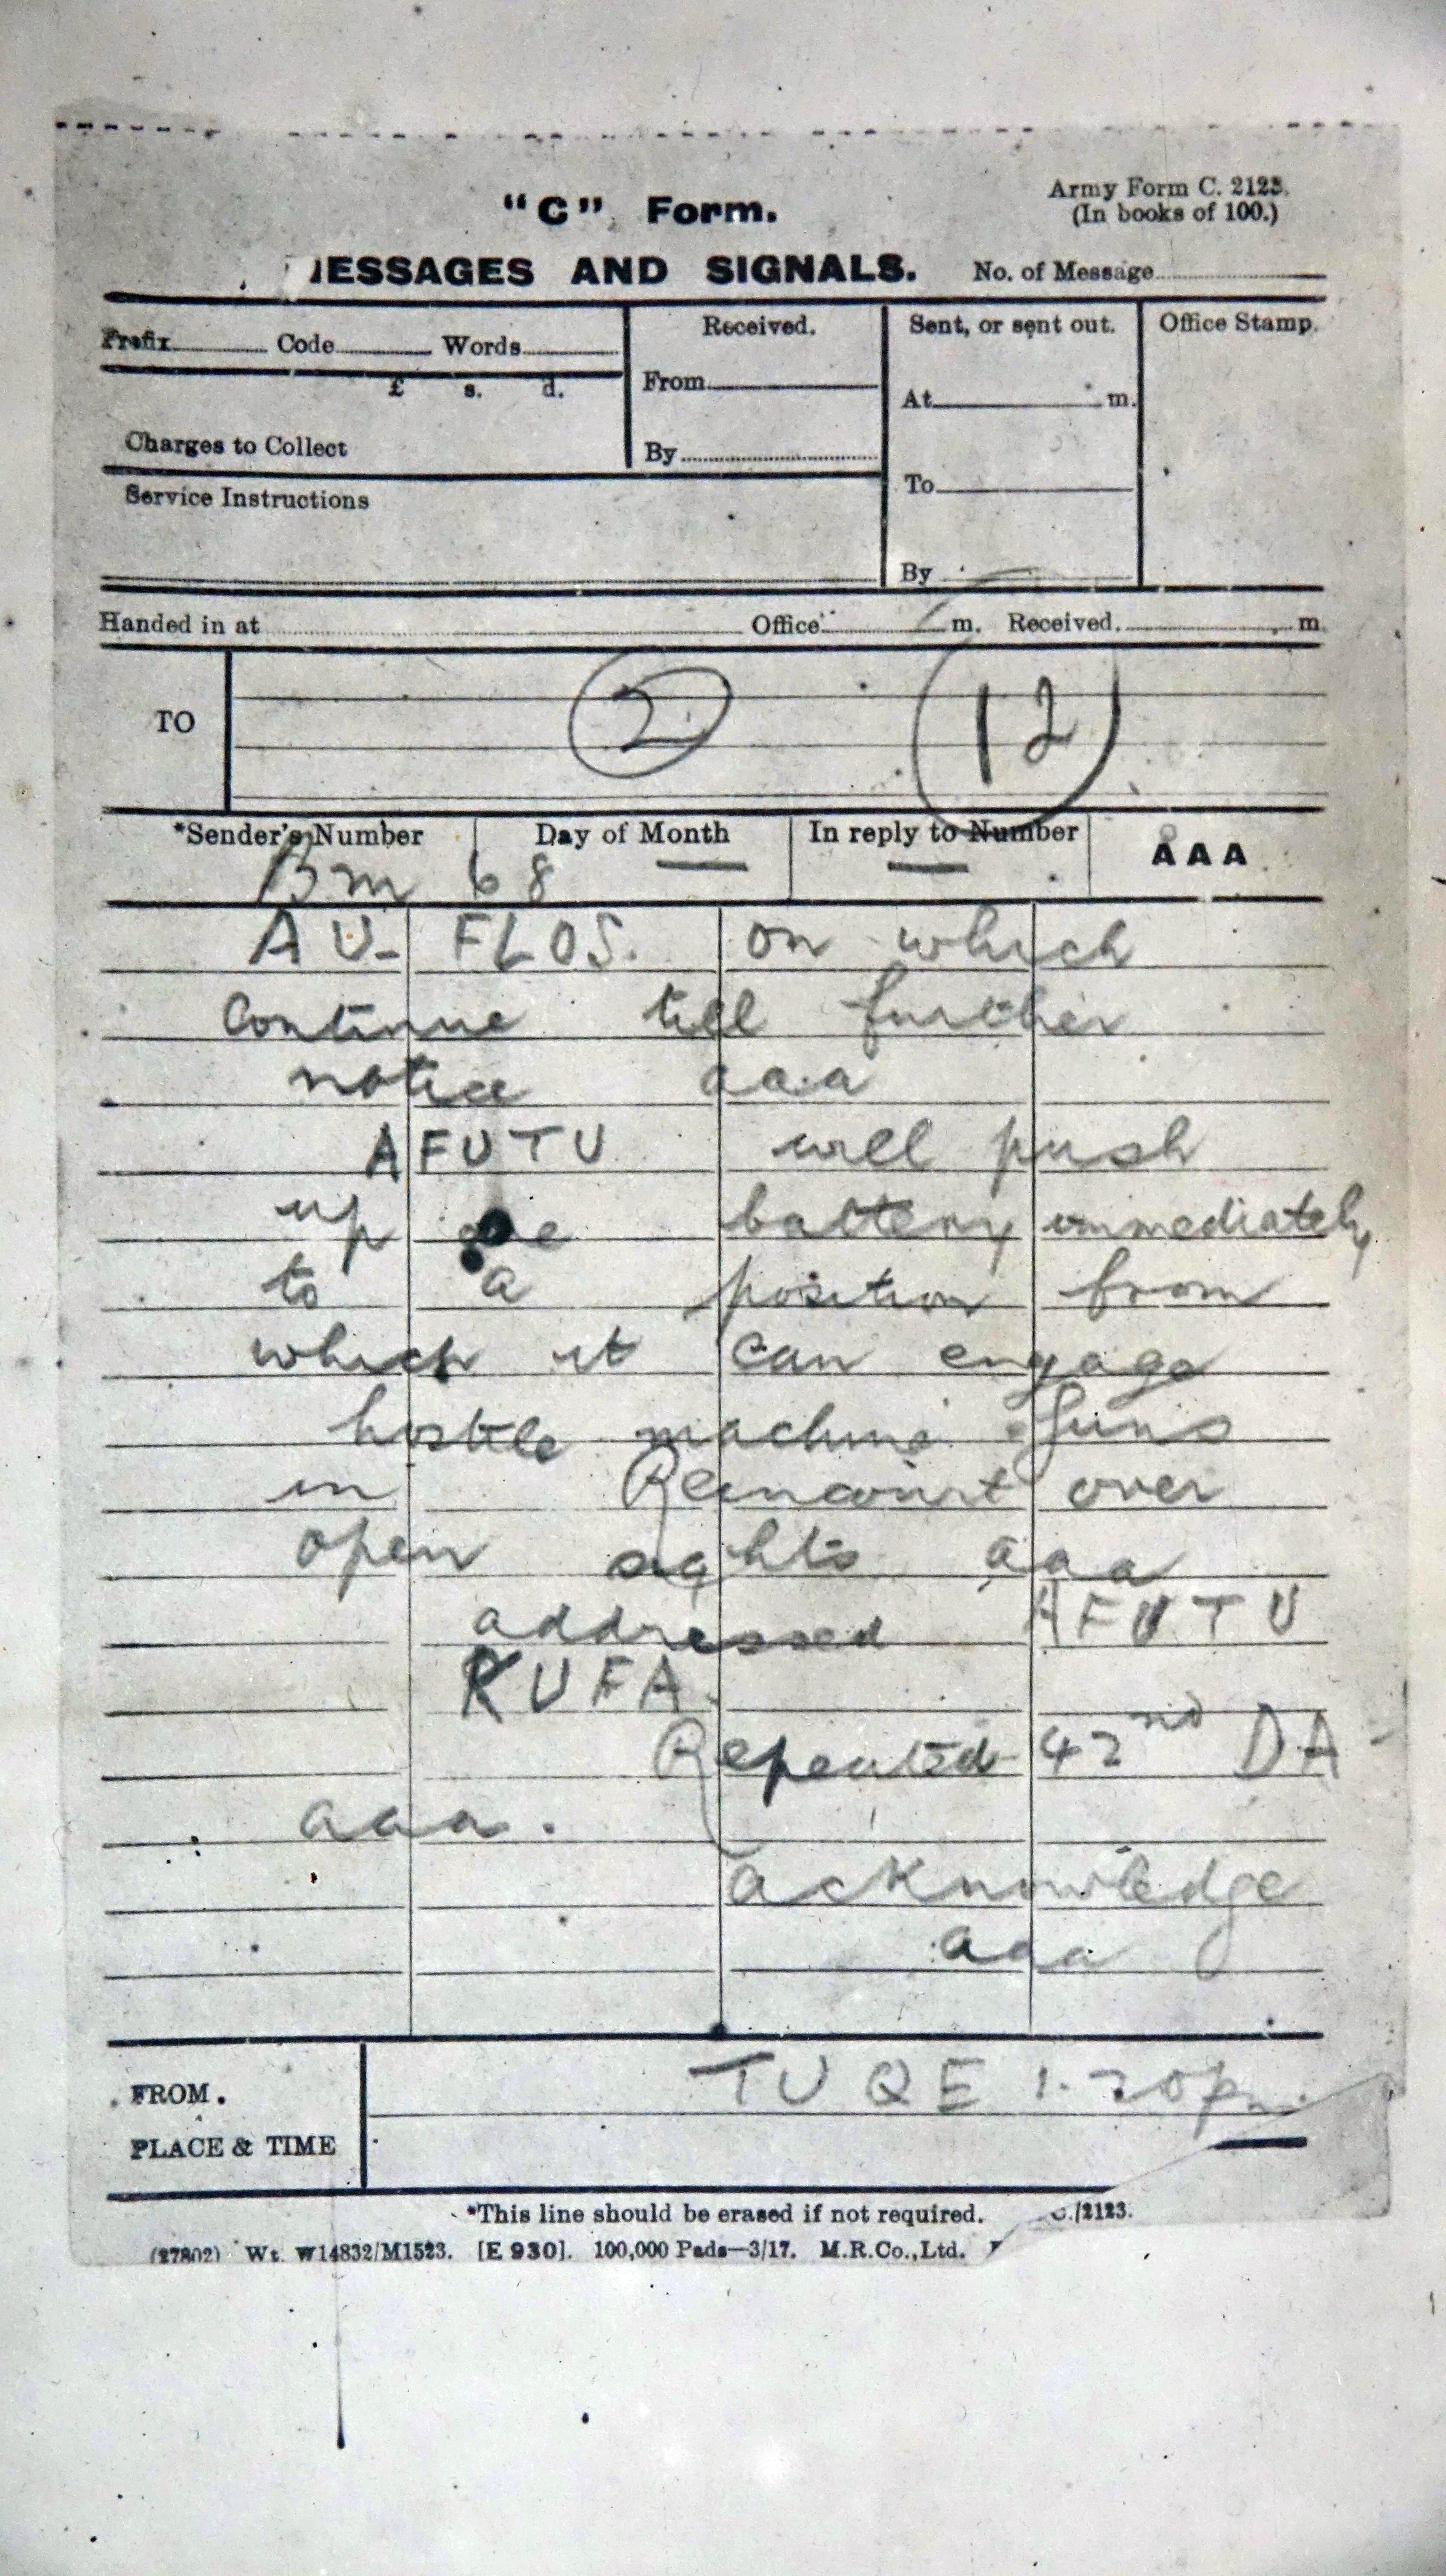 "C" Form.
Army Form C. 2123.
(In books of 100.)
MESSAGES AND SIGNALS.
No. of Message
Prefix Code Words
£ s. d.
Charges to Collect
Service Instructions
Received.
From
By
Sent, or sent out.
At m.
To
By
Office Stamp.
Handed in at Office m. Received m.
TO
2 12
*Sender's Number Day of Month In reply to Number AAA
Bm 68 — —
AU- FLOS. on which
Continue till further
notice aaa
AFUTU will push
up battery immediately
to a position from
which it can engage
hostile machine guns
in Reincourt over
open sights aaa
addressed AFUTU
KUFA.
Repeated 42nd DA
aaa.
acknowledge
aaa
FROM.
PLACE & TIME
TUQE 1.20pm.
*This line should be erased if not required.
C./2123.
(27802) Wt. W14832/M1523. [E 930]. 100,000 Pads—3/17. M.R.Co.,Ltd.